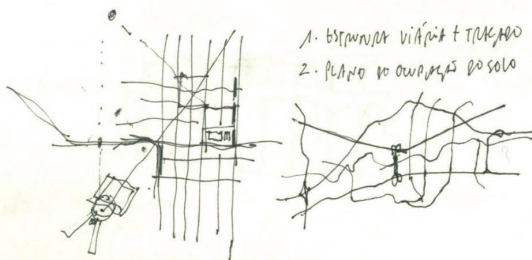 1. ESTRUTURA VIÁRIA + TRAÇADO
2. PLANO DE OCUPAÇÃO DO SOLO